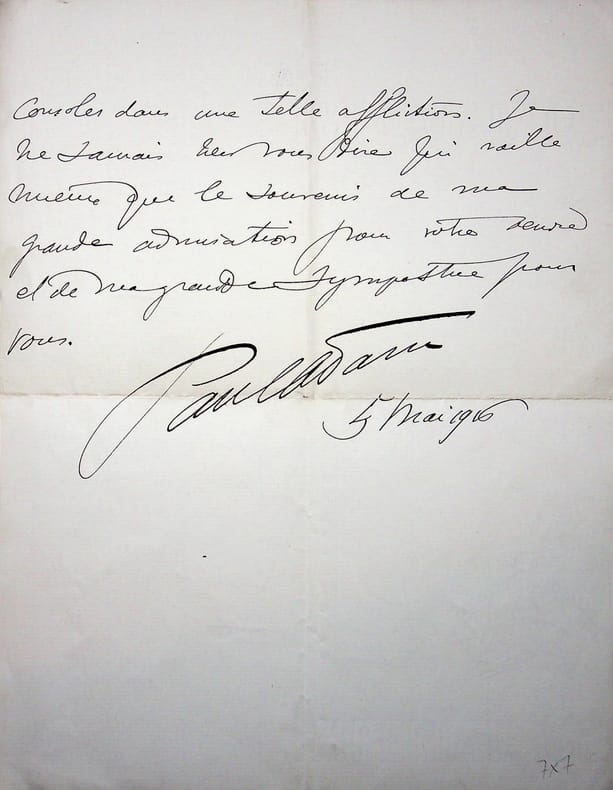 Consoler dans une telle affliction. Je
ne saurais rien vous dire qui vaille
mieux que le souvenir de ma
grande admiration pour votre
et de ma grande sympathie pour
vous.
Paul Adam
5 Mai 1916
7x7